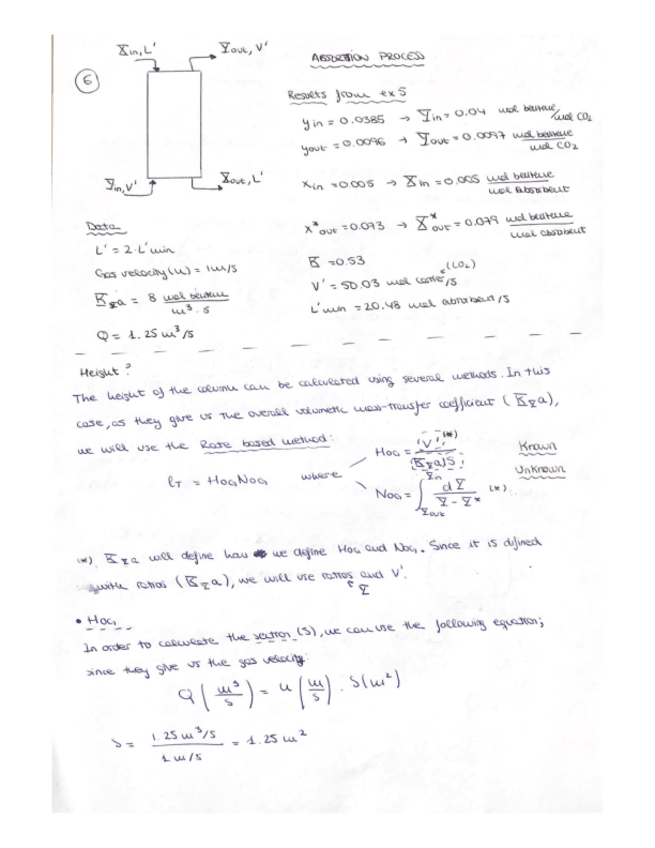 X̄in, L' Ȳout, V'
ABSORTION PROCESS
6
Results from ex 5
yin = 0.0385 → Ȳin = 0.04 mol benzene/mol CO2
yout = 0.0096 → Ȳout = 0.0097 mol benzene/mol CO2
Ȳin, V' X̄out, L'
xin = 0.005 → X̄in = 0.005 mol benzene/mol absorbent
x*out = 0.073 → X̄*out = 0.079 mol benzene/mol absorbent
Data
L' = 2·L'min
Gas velocity (u) = 1 m/s
K̄ȳa = 8 mol benzene/m³·s
Q = 1.25 m³/s
K̄ = 0.53
V' = 50.03 mol carrier/s (CO2)
L'min = 20.48 mol absorbent/s
Height?
The height of the column can be calculated using several methods. In this
case, as they give us the overall volumetric mass-transfer coefficient (K̄ȳa),
we will use the Rate based method:
lT = HOG NOG where
HOG = V' (*) / (K̄ȳa) S
Known
Unknown
NOG = ∫ Ȳout Ȳin dȲ / Ȳ - Ȳ* (*)
(*) K̄ȳa will define how we define HOG and NOG. Since it is defined
with ratios (K̄ȳa), we will use ratios and V'.
Ȳ
• HOG
In order to calculate the section (S), we can use the following equation;
since they give us the gas velocity:
Q (m³/s) = u (m/s) · S (m²)
S = 1.25 m³/s / 1 m/s = 1.25 m²